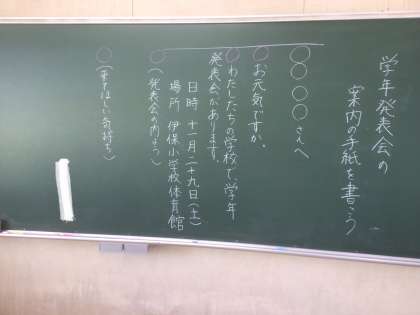 学年発表会の
案内の手紙を書こう
○○○○さんへ
お元気ですか。
わたしたちの学校で、学年
発表会があります。
日時 十一月二十九日(土)
場所 伊保小学校体育館
(発表会の内よう)
(来てほしい気持ち)